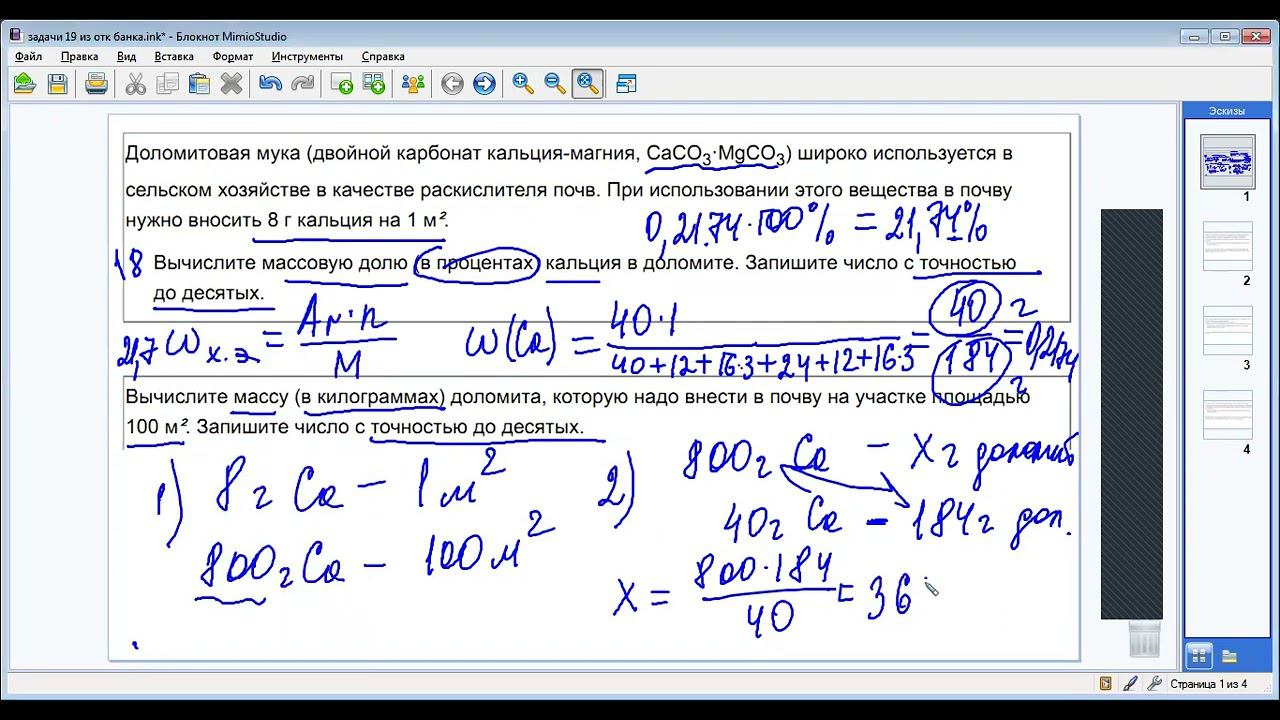 задачи 19 из отк банка.ink* - Блокнот MimioStudio
Файл Правка Вид Вставка Формат Инструменты Справка
Эскизы
Доломитовая мука (двойной карбонат кальция-магния, CaCO₃·MgCO₃) широко используется в
сельском хозяйстве в качестве раскислителя почв. При использовании этого вещества в почву
нужно вносить 8 г кальция на 1 м².
0,2174·100% = 21,74%
18 Вычислите массовую долю (в процентах) кальция в доломите. Запишите число с точностью
до десятых.
21,7 W х.э = Ar·n / M
W(Ca) = 40·1 / 40+12+16·3+24+12+16·3 = 40 г / 184 г = 0,2174
Вычислите массу (в килограммах) доломита, которую надо внести в почву на участке площадью
100 м². Запишите число с точностью до десятых.
1) 8 г Ca – 1 м²
800 г Ca – 100 м²
2) 800 г Ca – X г доломит
40 г Ca – 184 г дол.
X = 800·184 / 40 = 36
1
2
3
4
Страница 1 из 4